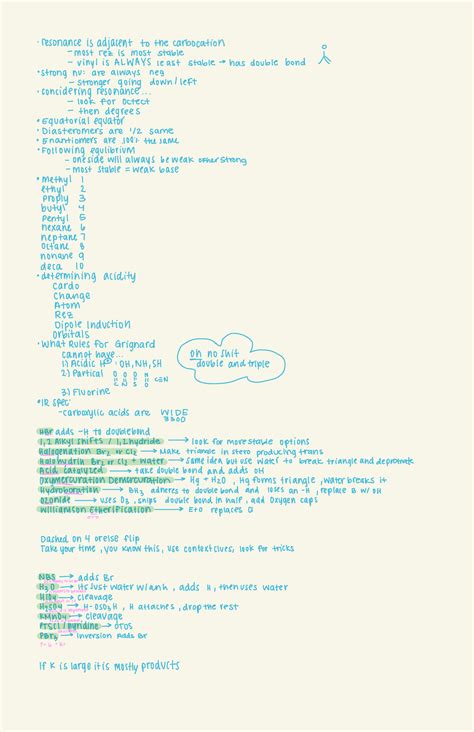 · resonance is adjacent to the carbocation
- most rez is most stable
- vinyl is ALWAYS least stable → has double bond
· strong nu: are always neg
- stronger going down/left
· concidering resonance...
- look for octect
- then degrees
· Equatorial equator
· Diasteromers are 1/2 same
· Enantiomers are 100% the same
· Following equlibrium
- one side will always be weak other strong
- most stable = weak base
· methyl 1
ethyl 2
proply 3
butyl 4
pentyl 5
hexane 6
neptane 7
octane 8
nonane 9
deca 10
· determining acidity
Cardo
Change
Atom
Rez
Dipole Induction
Orbitals
· What Rules for Grignard
cannot have...
1) Acidic H OH, NH, SH
2) Partical
O O O
C S N C≡N
3) Fluorine
oh no shit
double and triple
· IR spec
- carboxylic acids are WIDE
HBr adds -H to doublebond
1,2 Alkyl shifts / 1,2 hydride → look for more stable options
Halogenation Br₂ or Cl₂ → Make triangle in stero producing trans
Halohydrin Br₂ or Cl₂ + water → same idea but use water to break triangle and deprotonate
Acid catalyzed → take double bond and adds OH
Oxymercuration Demercuration → Hg + H₂O, Hg forms triangle, water breaks it
Hydroboration → BH₃ adheres to double bond and loses an -H, replace B w/ OH
Ozonide → uses O₃, snips double bond in half, add oxygen caps
Williamson Etherification → EtO replaces
Dashed on 4 preise flip
Take your time, you know this, use context clues, look for tricks
NBS → adds Br
H₂O → its just water w/ an h, adds H, then uses water
HIO₄ → cleavage
H₂SO₄ → H-OSO₃H, H attaches, drop the rest
KMnO₄ → cleavage
PTSCl / Pyridine → OTOS
PBr₃ → inversion adds Br
If K is large it is mostly products